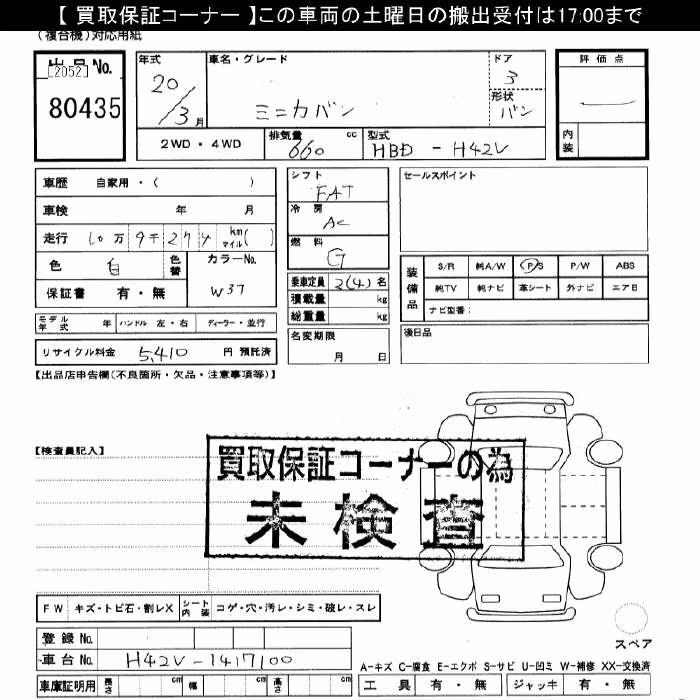 【 買取保証コーナー 】この車両の土曜日の搬出受付は17:00まで
(複合機)対応用紙
出品No.
[2052]
80435
年式
20/3月
車名・グレード
ミニカバン
ドア
3
形状
バン
評価点
内装
2WD ・ 4WD
排気量 660 cc
型式 HBD - H42V
車歴 自家用・( )
車検 年 月
走行 10万 9千 2 7 4 km マイル( )
色 白 色替
カラーNo.
W37
保証書 有・無
シフト
FAT
冷房
AC
燃料
G
乗車定員 2(4) 名
積載量 kg
総重量 kg
名変期限
月 日
セールスポイント
装備品
S/R 純A/W P/S P/W ABS
純TV 純ナビ 革シート 外ナビ エアB
ナビ型番:
後日品
モデル年式 年 ハンドル 左・右 ディーラー・並行
リサイクル料金 5,410 円 預託済
【出品店申告欄(不良箇所・欠品・注意事項等)】
【検査員記入】
買取保証コーナーの為
未検査
FW キズ・トビ石・割レX シート内装 コゲ・穴・汚レ・シミ・破レ・スレ
登録No.
車台No. H42V-1417100
車庫証明用 長さ cm 幅 cm 高さ cm
スペア
A-キズ C-腐食 E-エクボ S-サビ U-凹ミ W-補修 XX-交換済
工具 有・無 ジャッキ 有・無